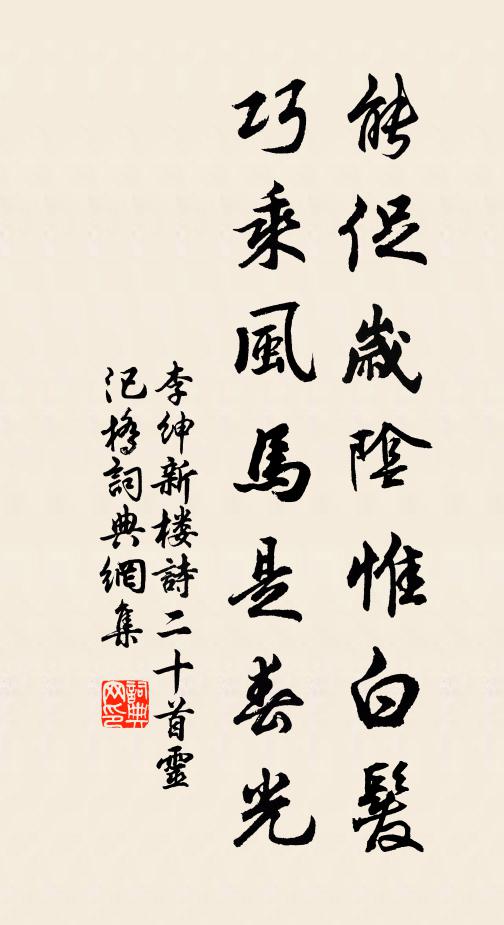 能促歲陰惟白髮
巧乘風馬是春光
李紳新楼詩二十首靈
汜橋詞典網集
詞典网印